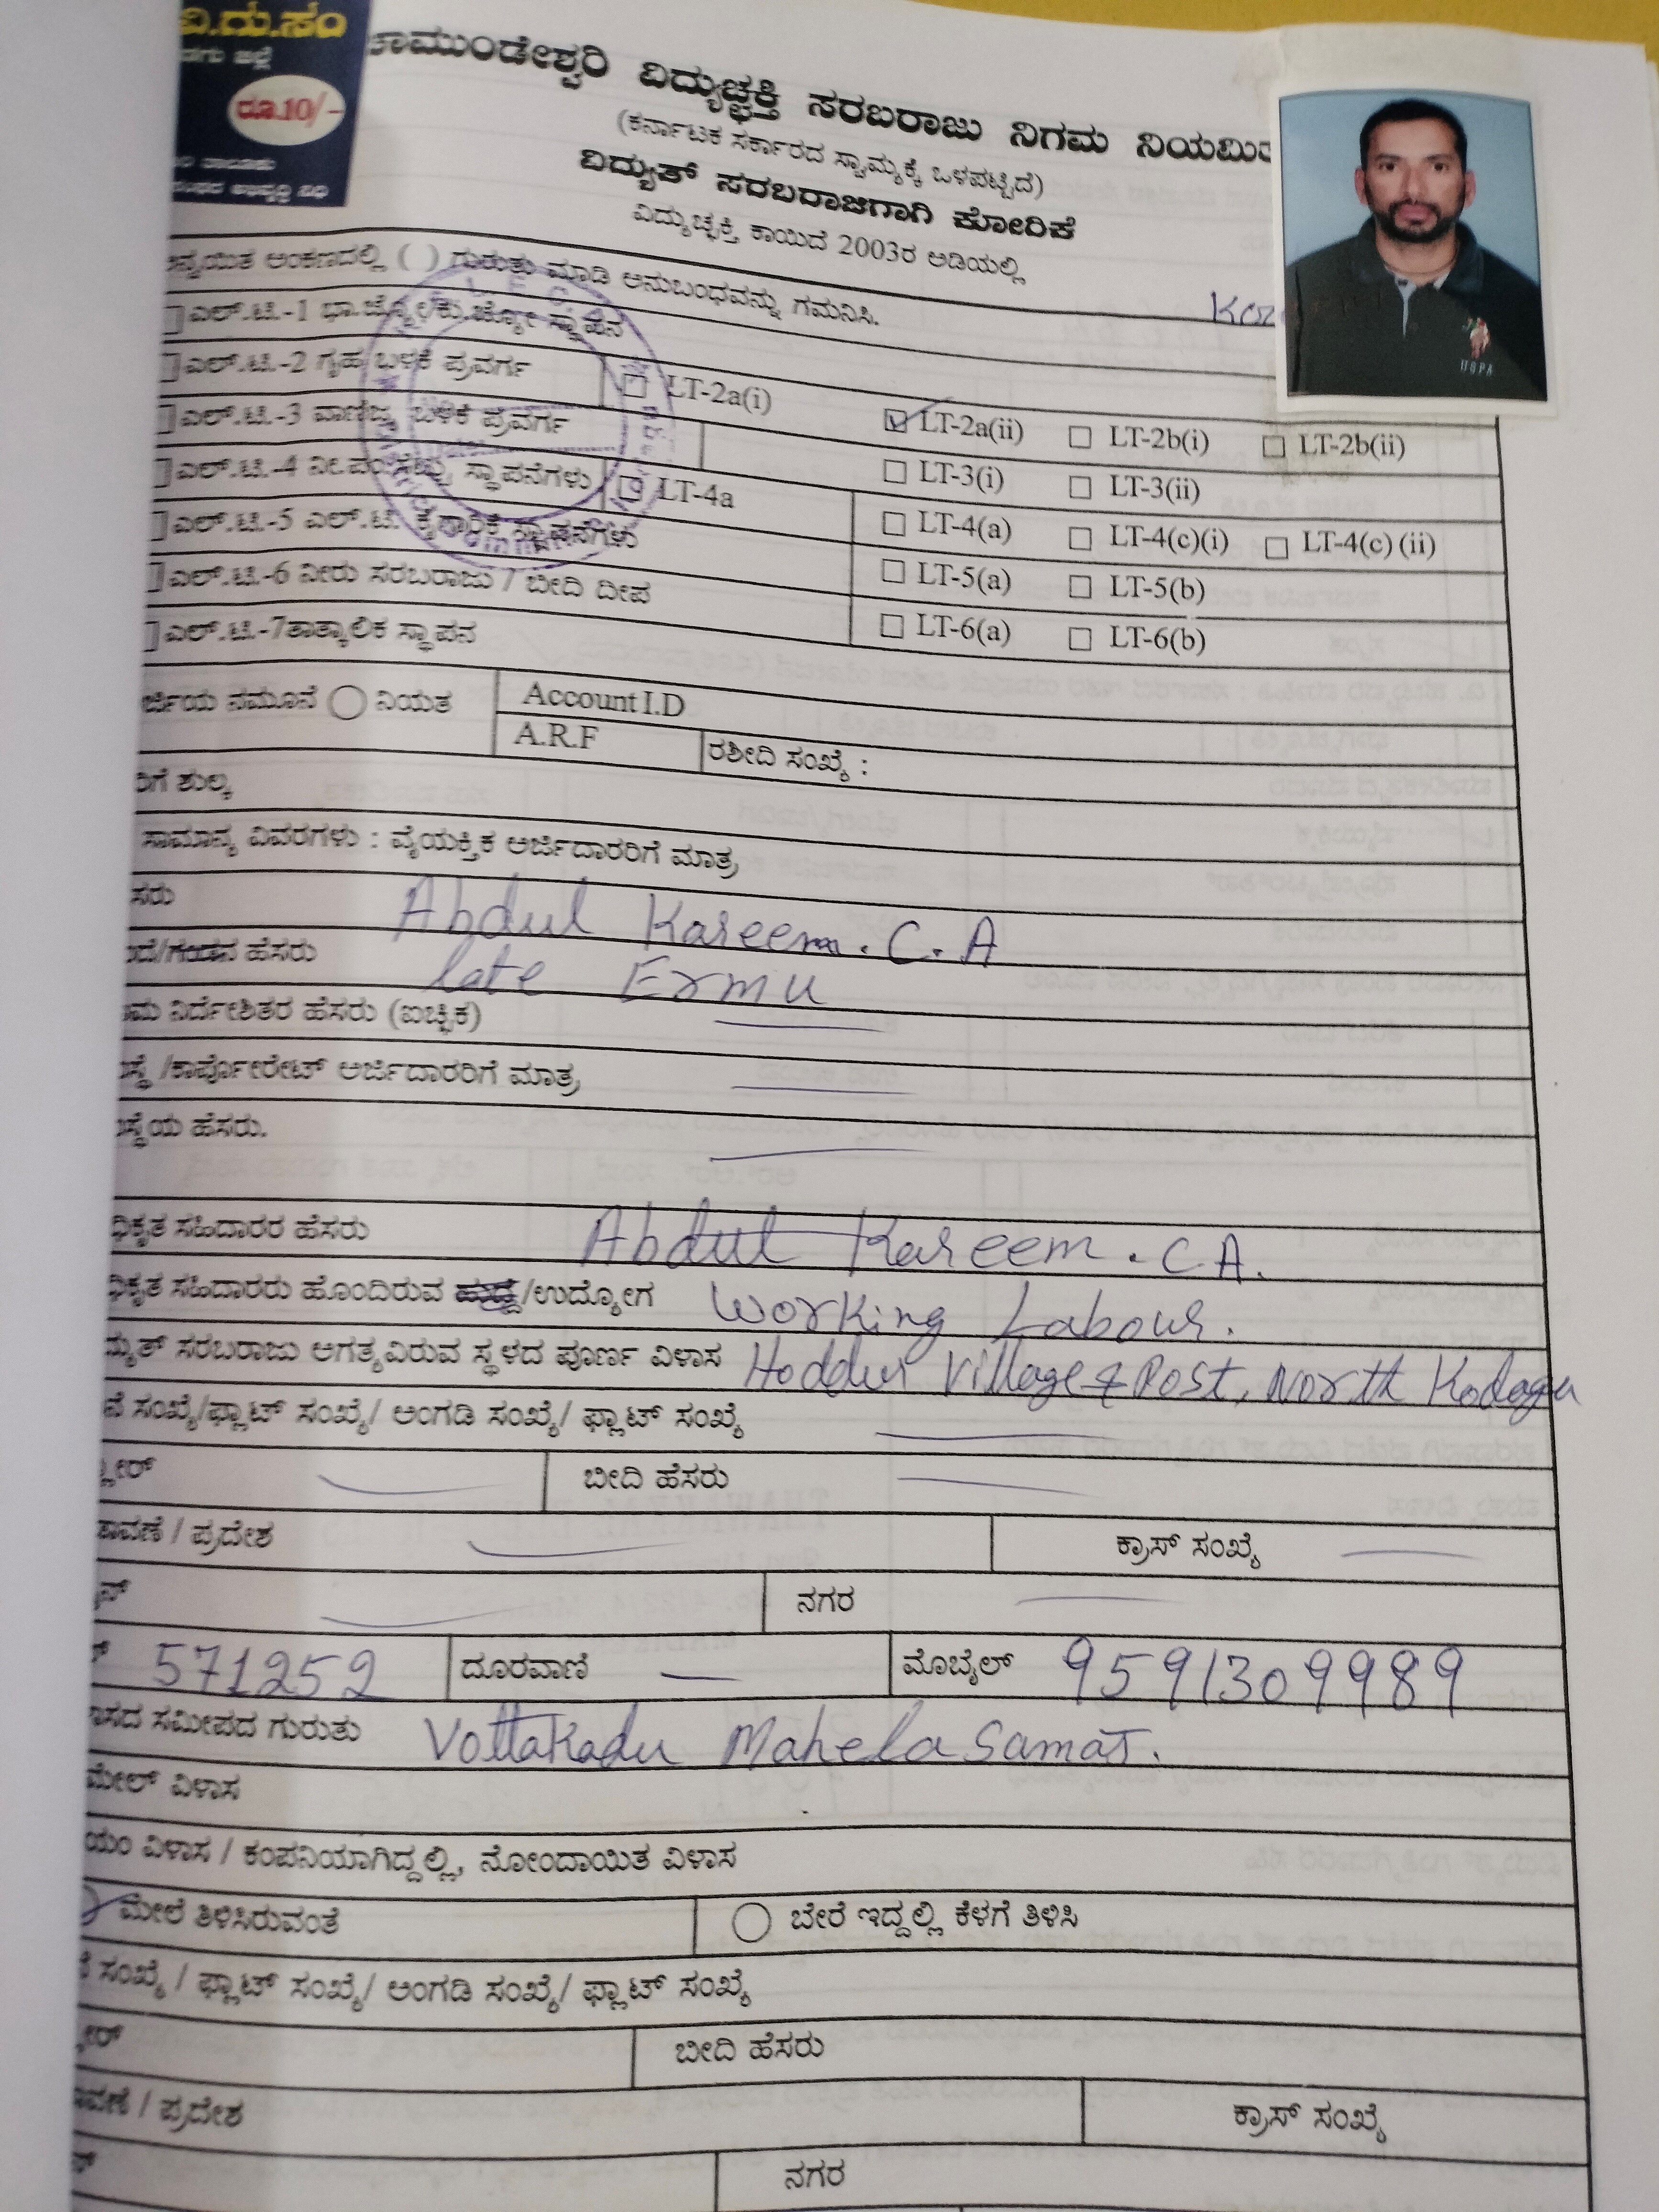 ವಿ.ದು.ಸಂ
ರೂ.10/-
ಚಾಮುಂಡೇಶ್ವರಿ ವಿದ್ಯುಚ್ಛಕ್ತಿ ಸರಬರಾಜು ನಿಗಮ ನಿಯಮಿತ
(ಕರ್ನಾಟಕ ಸರ್ಕಾರದ ಸ್ವಾಮ್ಯಕ್ಕೆ ಒಳಪಟ್ಟಿದೆ)
ವಿದ್ಯುತ್ ಸರಬರಾಜಿಗಾಗಿ ಕೋರಿಕೆ
ವಿದ್ಯುಚ್ಛಕ್ತಿ ಕಾಯಿದೆ 2003ರ ಅಡಿಯಲ್ಲಿ
ನ್ವಯಿತ ಅಂಕಣದಲ್ಲಿ ( ) ಗುರುತು ಮಾಡಿ ಅನುಬಂಧವನ್ನು ಗಮನಿಸಿ.
USPA
ಎಲ್.ಟಿ.-1 ಭಾ.ಜ್ಯೋ/ಕು.ಜ್ಯೋ ಸ್ಥಾಪನ
ಎಲ್.ಟಿ.-2 ಗೃಹ ಬಳಕೆ ಪ್ರವರ್ಗ LT-2a(i) LT-2a(ii) LT-2b(i) LT-2b(ii)
ಎಲ್.ಟಿ.-3 ವಾಣಿಜ್ಯ ಬಳಕೆ ಪ್ರವರ್ಗ LT-3(i) LT-3(ii)
ಎಲ್.ಟಿ.-4 ನೀ.ಪಂ.ಸೆಟ್ಟು ಸ್ಥಾಪನೆಗಳು LT-4a LT-4(a) LT-4(c)(i) LT-4(c) (ii)
ಎಲ್.ಟಿ.-5 ಎಲ್.ಟಿ. ಕೈಗಾರಿಕೆ ಸ್ಥಾಪನೆಗಳು LT-5(a) LT-5(b)
ಎಲ್.ಟಿ.-6 ನೀರು ಸರಬರಾಜು / ಬೀದಿ ದೀಪ LT-6(a) LT-6(b)
ಎಲ್.ಟಿ.-7ತಾತ್ಕಾಲಿಕ ಸ್ಥಾಪನ
ರ್ಜಿಯ ನಮೂನೆ ನಿಯತ Account I.D
A.R.F ರಶೀದಿ ಸಂಖ್ಯೆ :
ರಿಗೆ ಶುಲ್ಕ
ಸಾಮಾನ್ಯ ವಿವರಗಳು : ವೈಯಕ್ತಿಕ ಅರ್ಜಿದಾರರಿಗೆ ಮಾತ್ರ
ಸರು Abdul Kareem. C. A
ದೆ/ಗಂಡನ ಹೆಸರು late Ermu
ಮ ನಿರ್ದೇಶಿತರ ಹೆಸರು (ಐಚ್ಛಿಕ)
ಸ್ಥೆ /ಕಾರ್ಪೋರೇಟ್ ಅರ್ಜಿದಾರರಿಗೆ ಮಾತ್ರ
ಸ್ಥೆಯ ಹೆಸರು.
ಧಿಕೃತ ಸಹಿದಾರರ ಹೆಸರು Abdul Kareem. C A.
ಧಿಕೃತ ಸಹಿದಾರರು ಹೊಂದಿರುವ ಹುದ್ದೆ/ಉದ್ಯೋಗ Working Labour.
ದ್ಯುತ್ ಸರಬರಾಜು ಅಗತ್ಯವಿರುವ ಸ್ಥಳದ ಪೂರ್ಣ ವಿಳಾಸ Hoddur Village & Post, North Kodagu
ನೆ ಸಂಖ್ಯೆ/ಫ್ಲಾಟ್ ಸಂಖ್ಯೆ/ ಅಂಗಡಿ ಸಂಖ್ಯೆ/ ಫ್ಲಾಟ್ ಸಂಖ್ಯೆ
ಬೀದಿ ಹೆಸರು
ಾವಣೆ / ಪ್ರದೇಶ ಕ್ರಾಸ್ ಸಂಖ್ಯೆ
ನಗರ
571252 ದೂರವಾಣಿ — ಮೊಬೈಲ್ 9591309989
ಾಸದ ಸಮೀಪದ ಗುರುತು Vottakadu Mahela Samaj.
ಮೇಲ್ ವಿಳಾಸ
ಯಂ ವಿಳಾಸ / ಕಂಪನಿಯಾಗಿದ್ದಲ್ಲಿ, ನೋಂದಾಯಿತ ವಿಳಾಸ
ಮೇಲೆ ತಿಳಿಸಿರುವಂತೆ ಬೇರೆ ಇದ್ದಲ್ಲಿ ಕೆಳಗೆ ತಿಳಿಸಿ
ನೆ ಸಂಖ್ಯೆ / ಫ್ಲಾಟ್ ಸಂಖ್ಯೆ/ ಅಂಗಡಿ ಸಂಖ್ಯೆ/ ಫ್ಲಾಟ್ ಸಂಖ್ಯೆ
ಬೀದಿ ಹೆಸರು
ಾವಣೆ / ಪ್ರದೇಶ ಕ್ರಾಸ್ ಸಂಖ್ಯೆ
ನಗರ